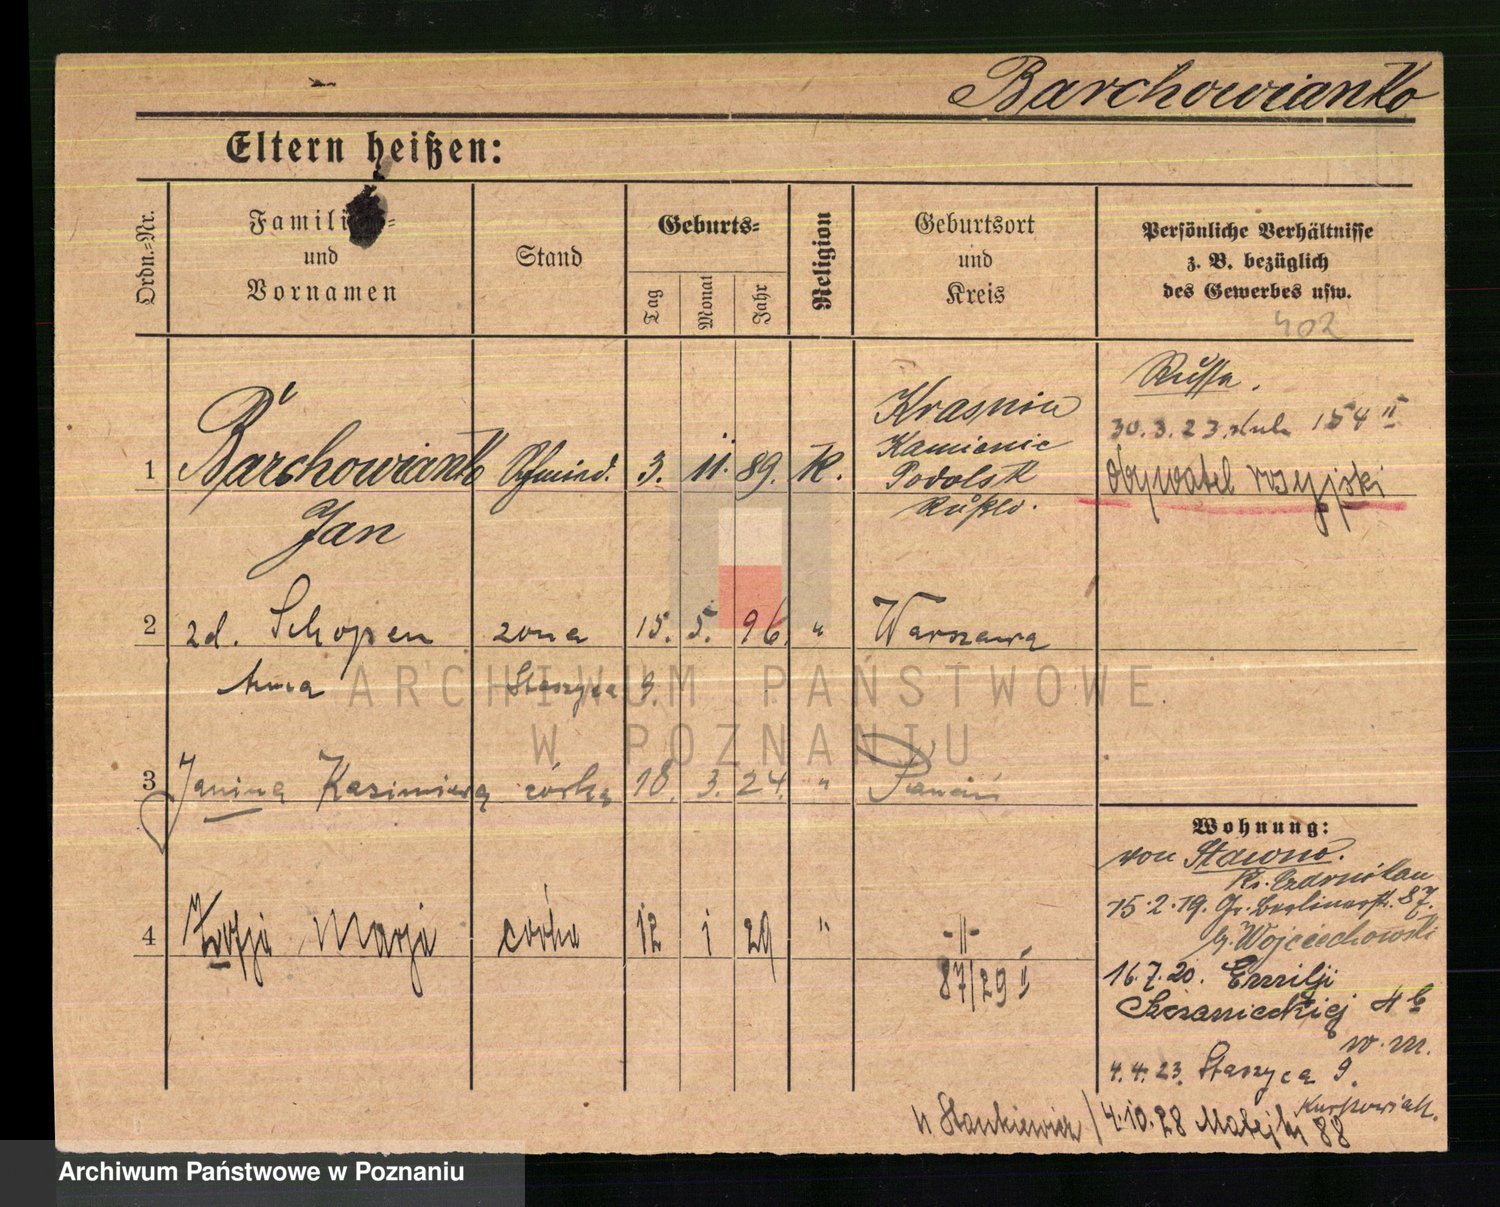 Barchowianko
Eltern heißen:
Ordn.=Nr.
Familien=
und
Vornamen
Stand
Geburts=
Tag
Monat
Jahr
Religion
Geburtsort
und
Kreis
Persönliche Verhältnisse
z. B. bezüglich
des Gewerbes usw.
402
Russe.
30.3.23. 154 II
Obywatel rosyjski
1 Barchowianko Schmied. 3. 11. 89. K. Krasnin
Jan
Kamienic
Podolsk
Rußld.
2 zd. Schopen zona 15. 5. 96. " Warszawa
Anna Staszyca 9.
3 Janina Kazimiera córka 18. 3. 24. " Poznań
4 Zofja Marja córka 12 1 29 " -II-
87/29 II
Wohnung:
von Stawno.
Kr. Czarnikau
15.2.19. Gr. Berlinerstr. 87.
b. Wojciechowski
16.7.20. Emilji
Sczanieckiej 4
w. m.
4.4.23. Staszyca 9.
Kurkowiak.
u Stankiewicz / 4.10.28 Matejki 88
ARCHIWUM PAŃSTWOWE
W POZNANIU
Archiwum Państwowe w Poznaniu